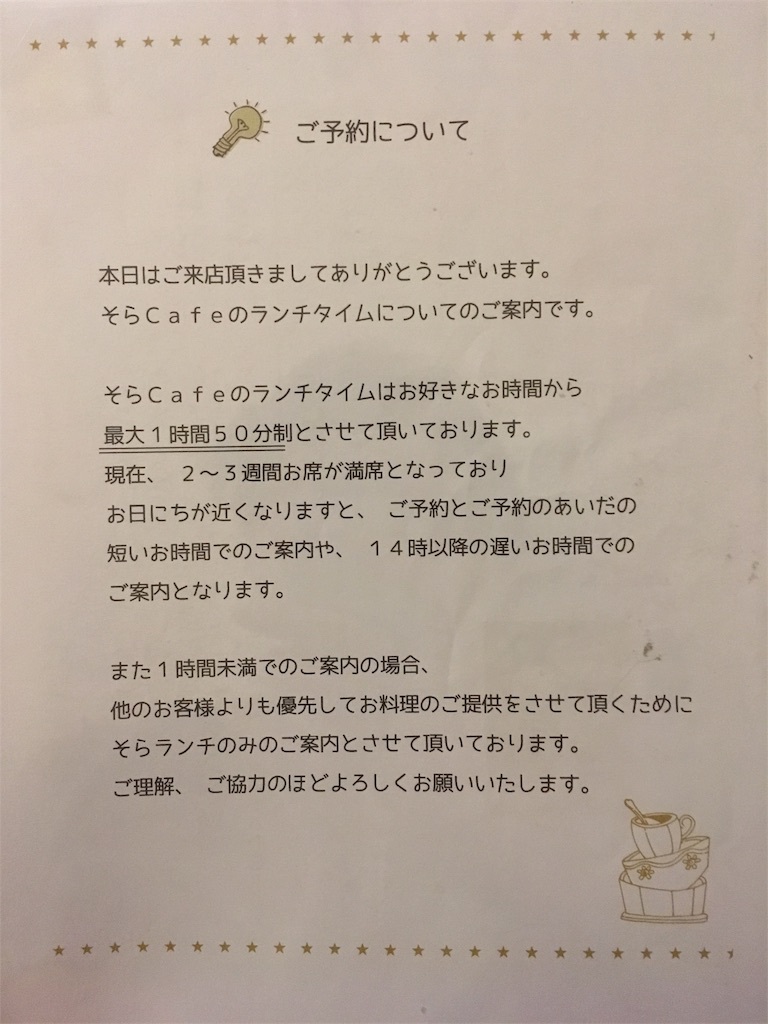 ご予約について
本日はご来店頂きましてありがとうございます。
そらＣａｆｅのランチタイムについてのご案内です。
そらＣａｆｅのランチタイムはお好きなお時間から
最大１時間５０分制とさせて頂いております。
現在、　２～３週間お席が満席となっており
お日にちが近くなりますと、　ご予約とご予約のあいだの
短いお時間でのご案内や、　１４時以降の遅いお時間での
ご案内となります。
また１時間未満でのご案内の場合、
他のお客様よりも優先してお料理のご提供をさせて頂くために
そらランチのみのご案内とさせて頂いております。
ご理解、　ご協力のほどよろしくお願いいたします。